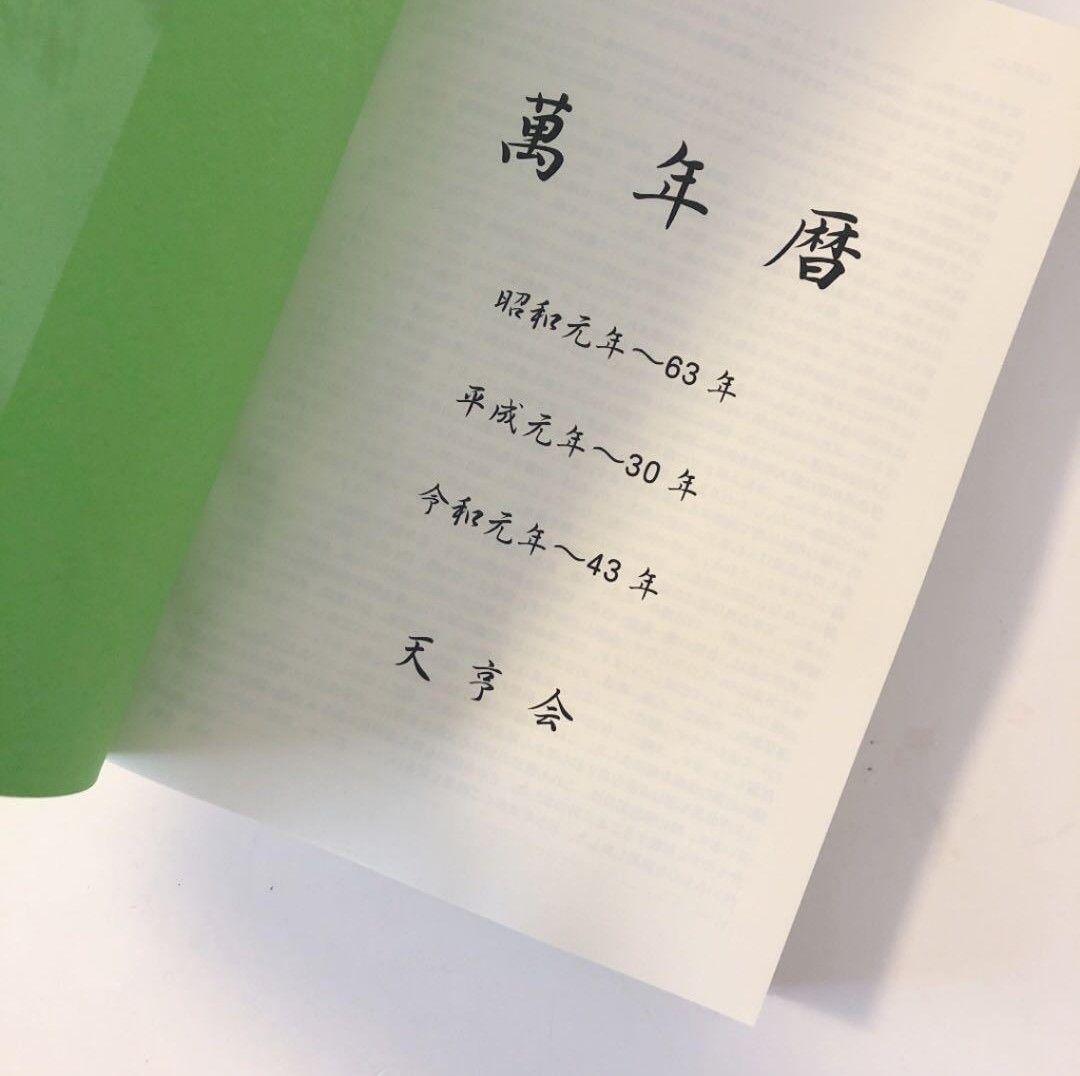 萬年暦
昭和元年～63年
平成元年～30年
令和元年～43年
天亨会